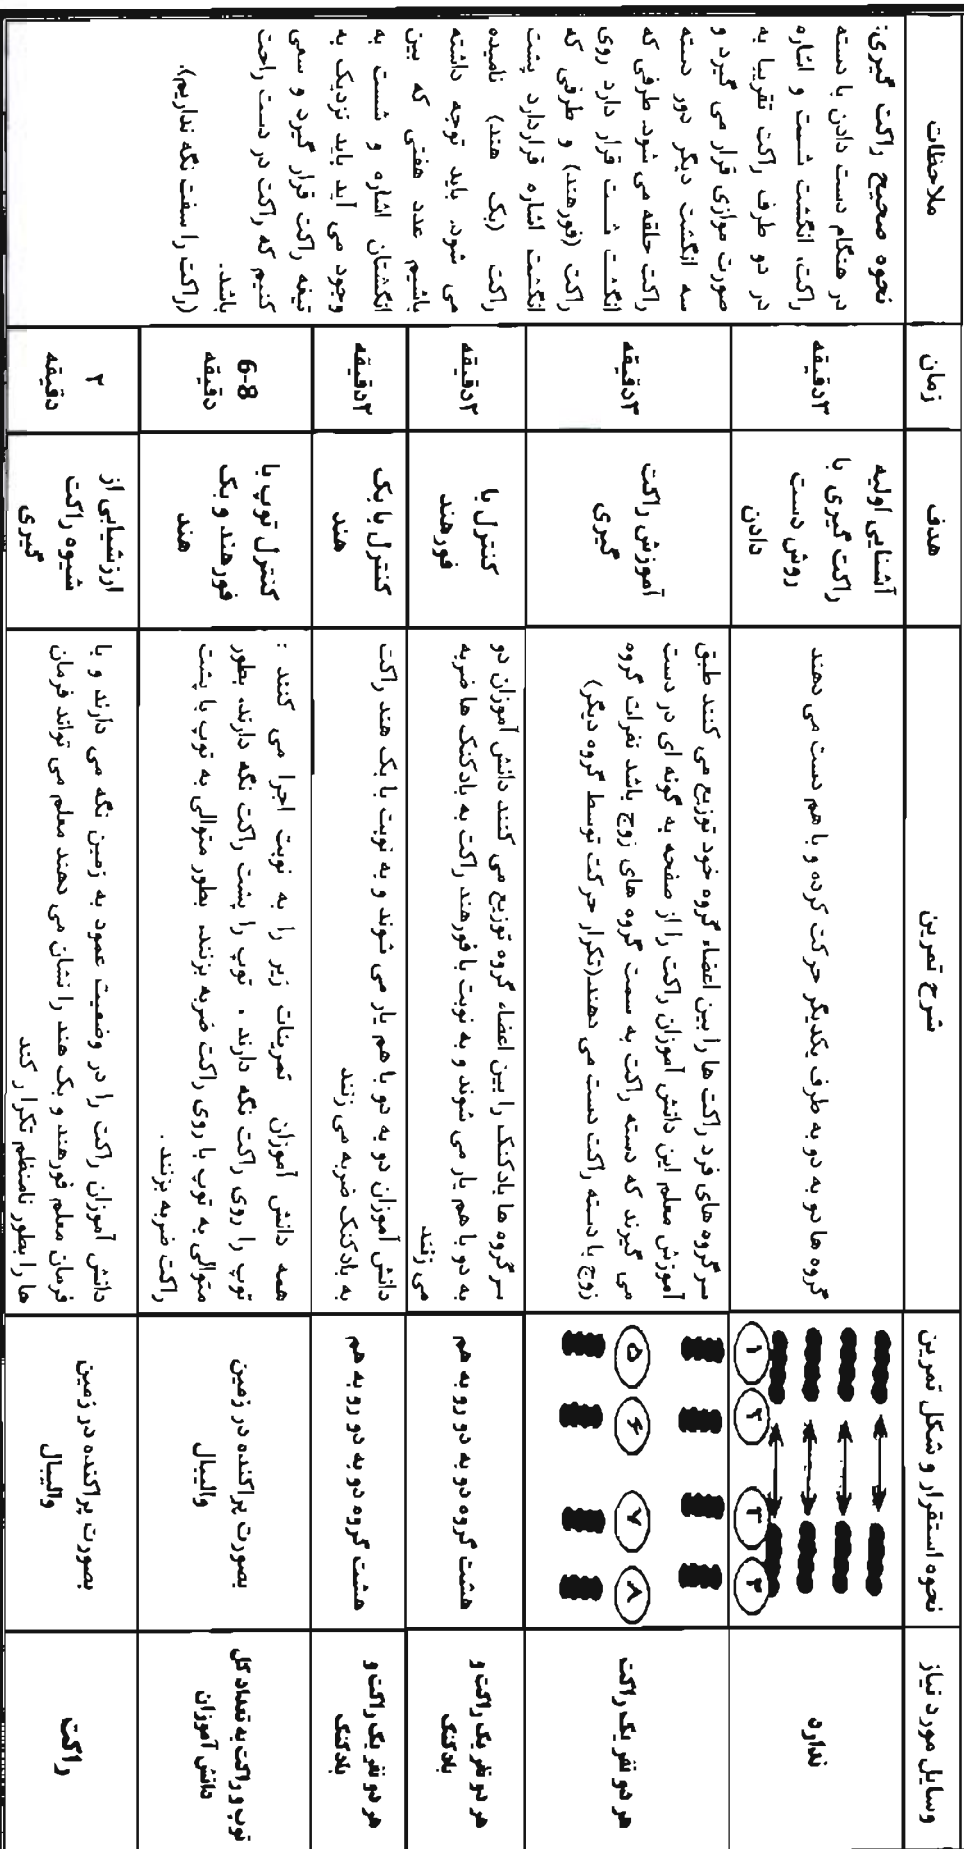 وسایل مورد نیاز
نحوه استقرار و شکل تمرین
شرح تمرین
هدف
زمان
ملاحظات
ندارد
۱
۲
۳
۴
گروه ها دو به دو به طرف یکدیگر حرکت کرده و با هم دست می دهند
آشنایی اولیه
راکت گیری با
روش دست
دادن
۳دقیقه
نحوه صحیح راکت گیری:
در هنگام دست دادن با دسته
راکت، انگشت شست و اشاره
در دو طرف راکت تقریبا به
صورت موازی قرار می گیرد و
سه انگشت دیگر دور دسته
راکت حلقه می شود. طرفی که
انگشت شست قرار دارد روی
راکت (فورهند) و طرفی که
انگشت اشاره قراردارد پشت
راکت (بک هند) نامیده
می شود. باید توجه داشته
باشیم عدد هفتی که بین
انگشتان اشاره و شست به
وجود می آید باید نزدیک به
تیغه راکت قرار گیرد و سعی
کنیم که راکت در دست راحت
باشد.
(راکت را سفت نگه نداریم).
هر دو نفر یک راکت
۵
۶
۷
۸
سر گروه های فرد راکت ها را بین اعضاء گروه خود توزیع می کنند طبق
آموزش معلم این دانش آموزان راکت را از صفحه به گونه ای در دست
می گیرند که دسته راکت به سمت گروه های زوج باشد نفرات گروه
زوج با دسته راکت دست می دهند(تکرار حرکت توسط گروه دیگر)
آموزش راکت
گیری
۳دقیقه
هر دو نفر یک راکت و
بادکنک
هشت گروه دو به دو رو به هم
سر گروه ها بادکنک را بین اعضاء گروه توزیع می کنند دانش آموزان دو
به دو با هم یار می شوند و به نوبت با فورهند راکت به بادکنک ها ضربه
می زنند
کنترل با
فورهند
۲دقیقه
هر دو نفر یک راکت و
بادکنک
هشت گروه دو به دو رو به هم
دانش آموزان دو به دو با هم یار می شوند و به نوبت با بک هند راکت
به بادکنک ضربه می زنند
کنترل با بک
هند
۲دقیقه
توپ و راکت به تعداد کل
دانش آموزان
بصورت پراکنده در زمین
والیبال
همه دانش آموزان تمرینات زیر را به نوبت اجرا می کنند :
توپ را روی راکت نگه دارند . توپ را پشت راکت نگه دارند. بطور
متوالی به توپ با روی راکت ضربه بزنند. بطور متوالی به توپ با پشت
راکت ضربه بزنند .
کنترل توپ با
فورهند و بک
هند
6-8
دقیقه
راکت
بصورت پراکنده در زمین
والیبال
دانش آموزان راکت را در وضعیت عمود به زمین نگه می دارند و با
فرمان معلم فورهند و بک هند را نشان می دهند معلم می تواند فرمان
ها را بطور نامنظم تکرا ر کند
ارزشیابی از
شیوه راکت
گیری
۲
دقیقه